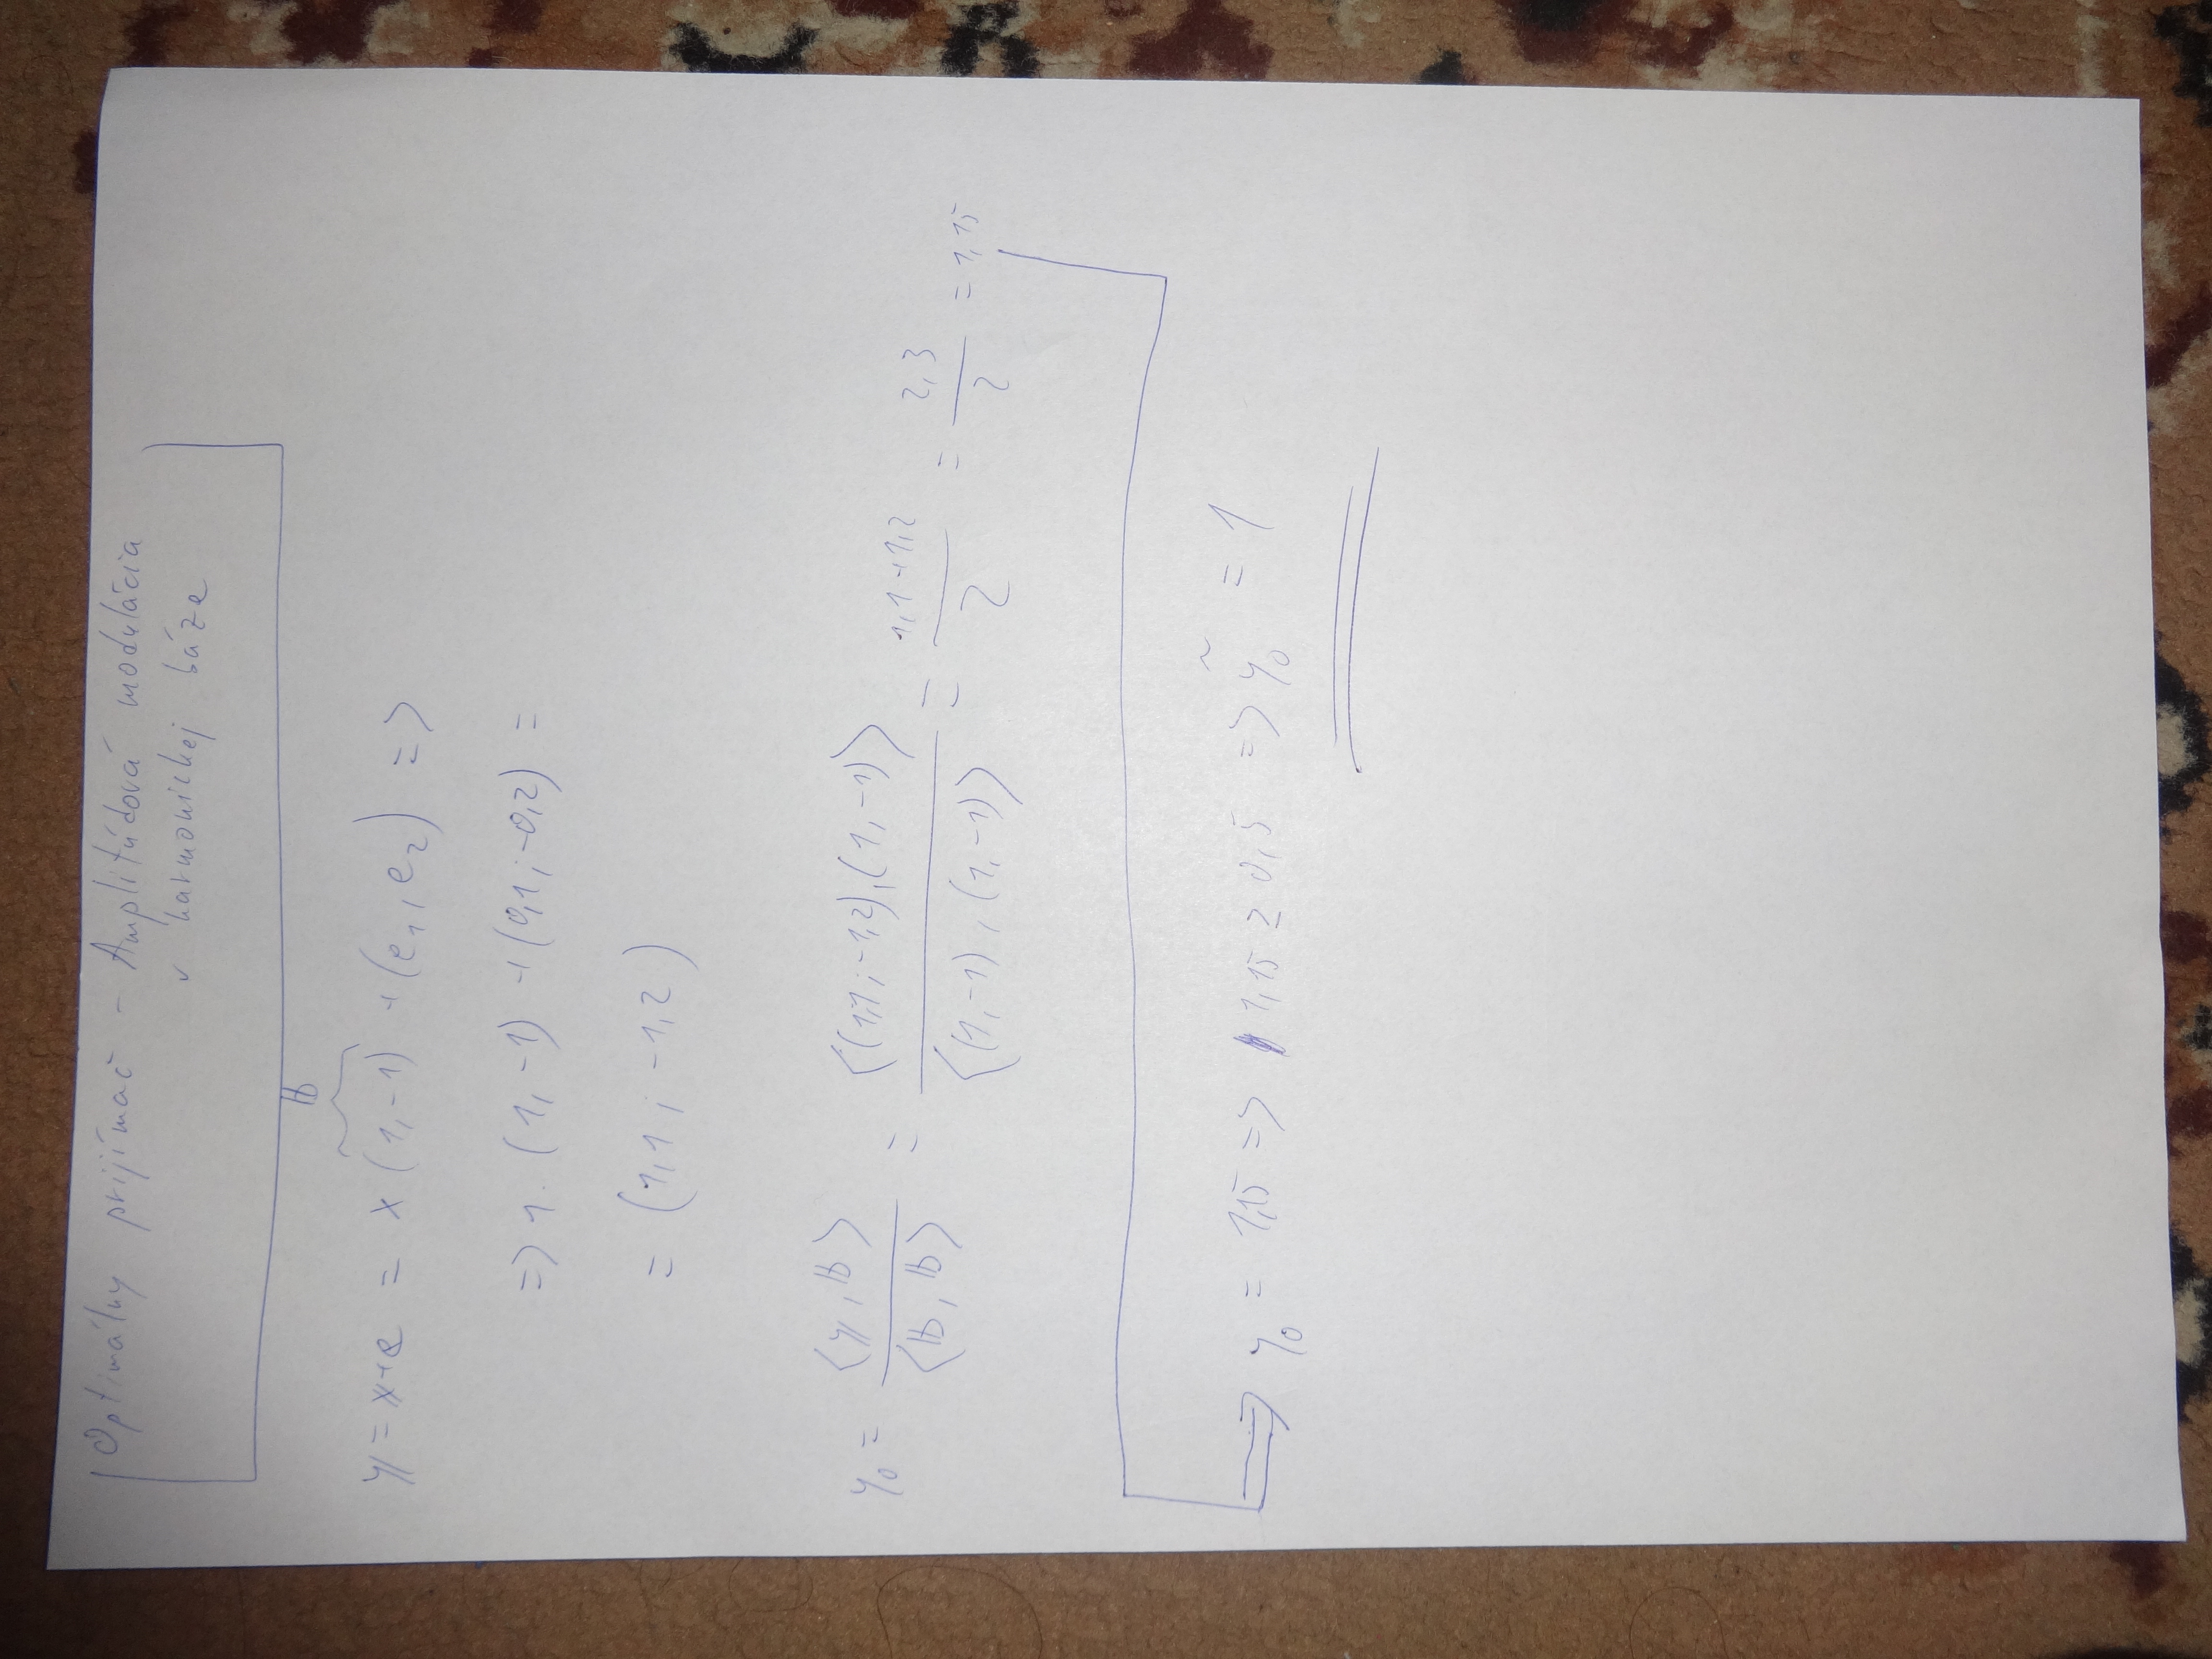 Optimálny prijímač - Amplitúdová modulácia
v harmonickej báze
b
y = x+e = x (1, -1) + (e₁, e₂) =>
=> 1. (1, -1) + (0,1 ; -0,2) =
= (1,1 ; -1,2)
y₀ = ⟨y, b⟩ / ⟨b, b⟩ = ⟨(1,1 ; -1,2), (1, -1)⟩ / ⟨(1, -1), (1, -1)⟩ = 1,1+1,2 / 2 = 2,3 / 2 = 1,15
=> y₀ = 1,15 => 1,15 ≥ 0,5 => ỹ₀ = 1